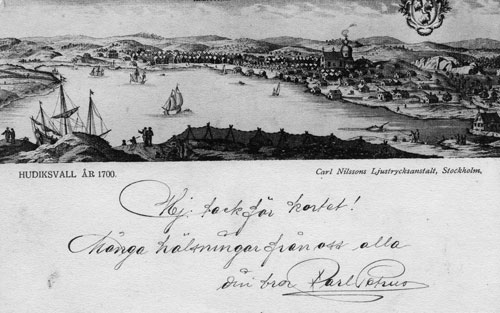 HUDIKSVALL ÅR 1700.
Carl Nilssons Ljustrycksanstalt, Stockholm,
Hj: tack för kortet!
Många hälsningar från oss alla
din bror Karl Petrus